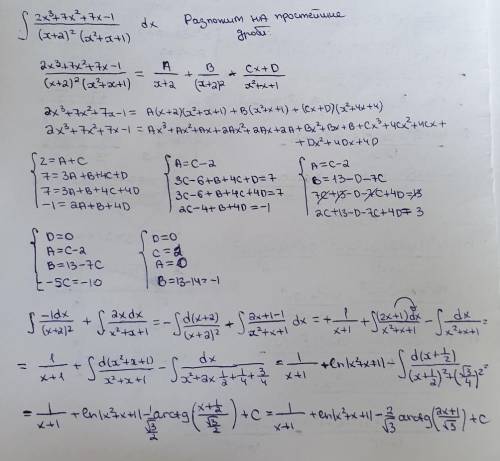 ∫ (2x³+7x²+7x-1)/((x+2)²(x²+x+1)) dx Разложим на простейшие дроби.
(2x³+7x²+7x-1)/((x+2)²(x²+x+1)) = A/(x+2) + B/(x+2)² + (Cx+D)/(x²+x+1)
2x³+7x²+7x-1 = A(x+2)(x²+x+1)+B(x²+x+1)+(Cx+D)(x²+4x+4)
2x³+7x²+7x-1 = Ax³+Ax²+Ax+2Ax²+2Ax+2A+Bx²+Bx+B+Cx³+4Cx²+4Cx+
+Dx²+4Dx+4D
{ 2=A+C { A=C-2 { A=C-2
7=3A+B+4C+D 3C-6+B+4C+D=7 B=13-D-7C
7=3A+B+4C+4D 3C-6+B+4C+4D=7 7C+13-D-7C+4D=13
-1=2A+B+4D 2C-4+B+4D=-1 2C+13-D-7C+4D=3
{ D=0 { D=0
A=C-2 C=2
B=13-7C A=0
-5C=-10 B=13-14=-1
∫ -1dx/(x+2)² + ∫ 2xdx/(x²+x+1) = -∫ d(x+2)/(x+2)² + ∫ (2x+1-1)/(x²+x+1) dx = + 1/(x+1) + ∫ (2x+1)dx/(x²+x+1) - ∫ dx/(x²+x+1) =
= 1/(x+1) + ∫ d(x²+x+1)/(x²+x+1) - ∫ dx/(x²+2x·1/2+1/4+3/4) = 1/(x+1) + ln|x²+x+1| - ∫ d(x+1/2)/((x+1/2)²+(√3/4)²) =
= 1/(x+1) + ln|x²+x+1| - 1/(√3/2) arctg((x+1/2)/(√3/2)) + C = 1/(x+1) + ln|x²+x+1| - 2/√3 arctg((2x+1)/√3) + C